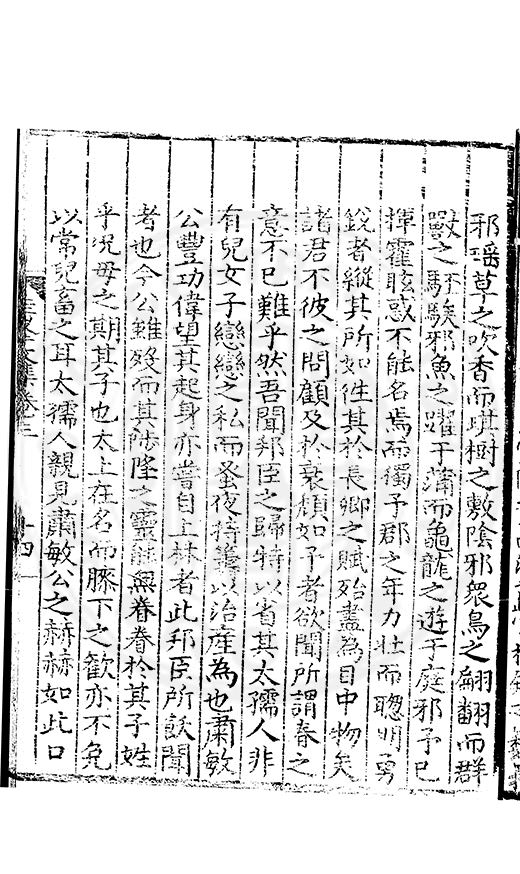 邪瑶草之吹香而琪樹之敷陰邪衆鳥之翩翻而群
獸之駓騃邪魚之躍于蒲而龜龍之遊于庭邪予已
揮霍眩惑不能名焉而獨予郡之年力壯而聰明勇
銳者縱其所如徃其於長卿之賦殆盡為目中物矣
諸君不彼之問顧及於衰頹如予者欲聞所謂春之
意不已難乎然吾聞邦臣之歸特以省其太孺人非
有兒女子戀戀之私而蚤夜持籌以治産為也肅敏
公豐功偉望其起身亦嘗自上林者此邦臣所飫聞
者也今公雖歿而其陟陞之靈能無眷眷於其子姓
乎况母之期其子也太上在名而膝下之歡亦不免
以常兒畜之耳太孺人親見肅敏公之赫赫如此口
集卷三
十四